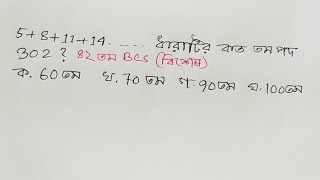 5+8+11+14..... ধারাটির কত তম পদ
302 ? ৪২ তম BCS (বিশেষ)
ক. 60 তম খ. 70 তম গ. 90 তম ঘ. 100 তম